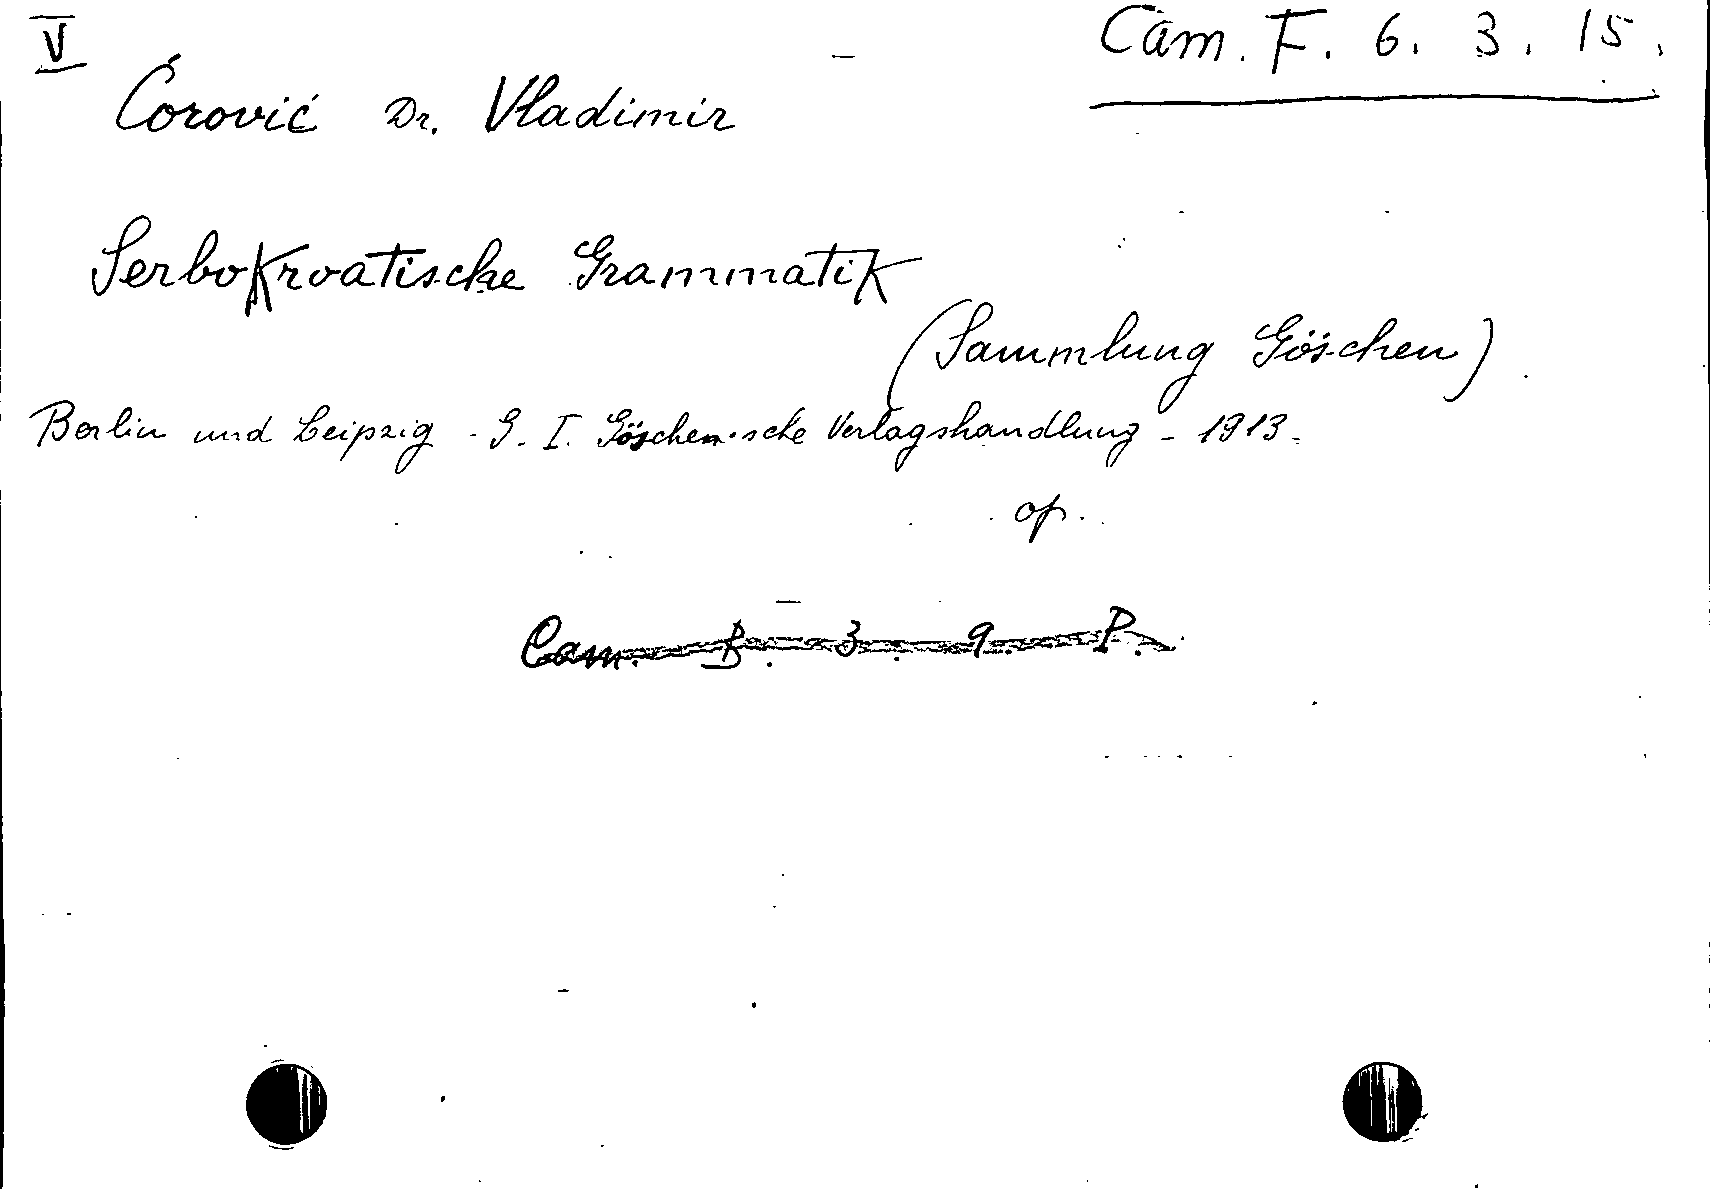 V
Cam. F. 6. 3. 15.
Ćorović Dr. Vladimir
Serbokroatische Grammatik
(Sammlung Göschen)
Berlin und Leipzig - G. I. Göschen'sche Verlagshandlung - 1913.
op.
Cam. B. 3. 9. P.